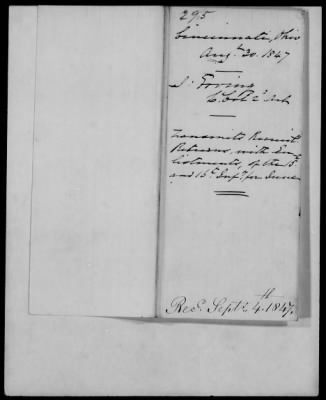 295
Cincinnati, Ohio
Augt. 30. 1847
J. Erving
Lt. Col. 2d Art
Transmits Recruit.
Returns, with En-
listments, of the
and 16th Infy. for June
Recd. Septr. 4th 1847.